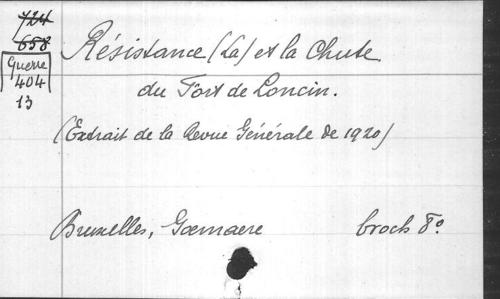 724
658
Guerre
404
13
Résistance (La) et la Chute
du Fort de Loncin.
(Extrait de la Revue Générale de 1920)
Bruxelles, Goemaere broch 8º